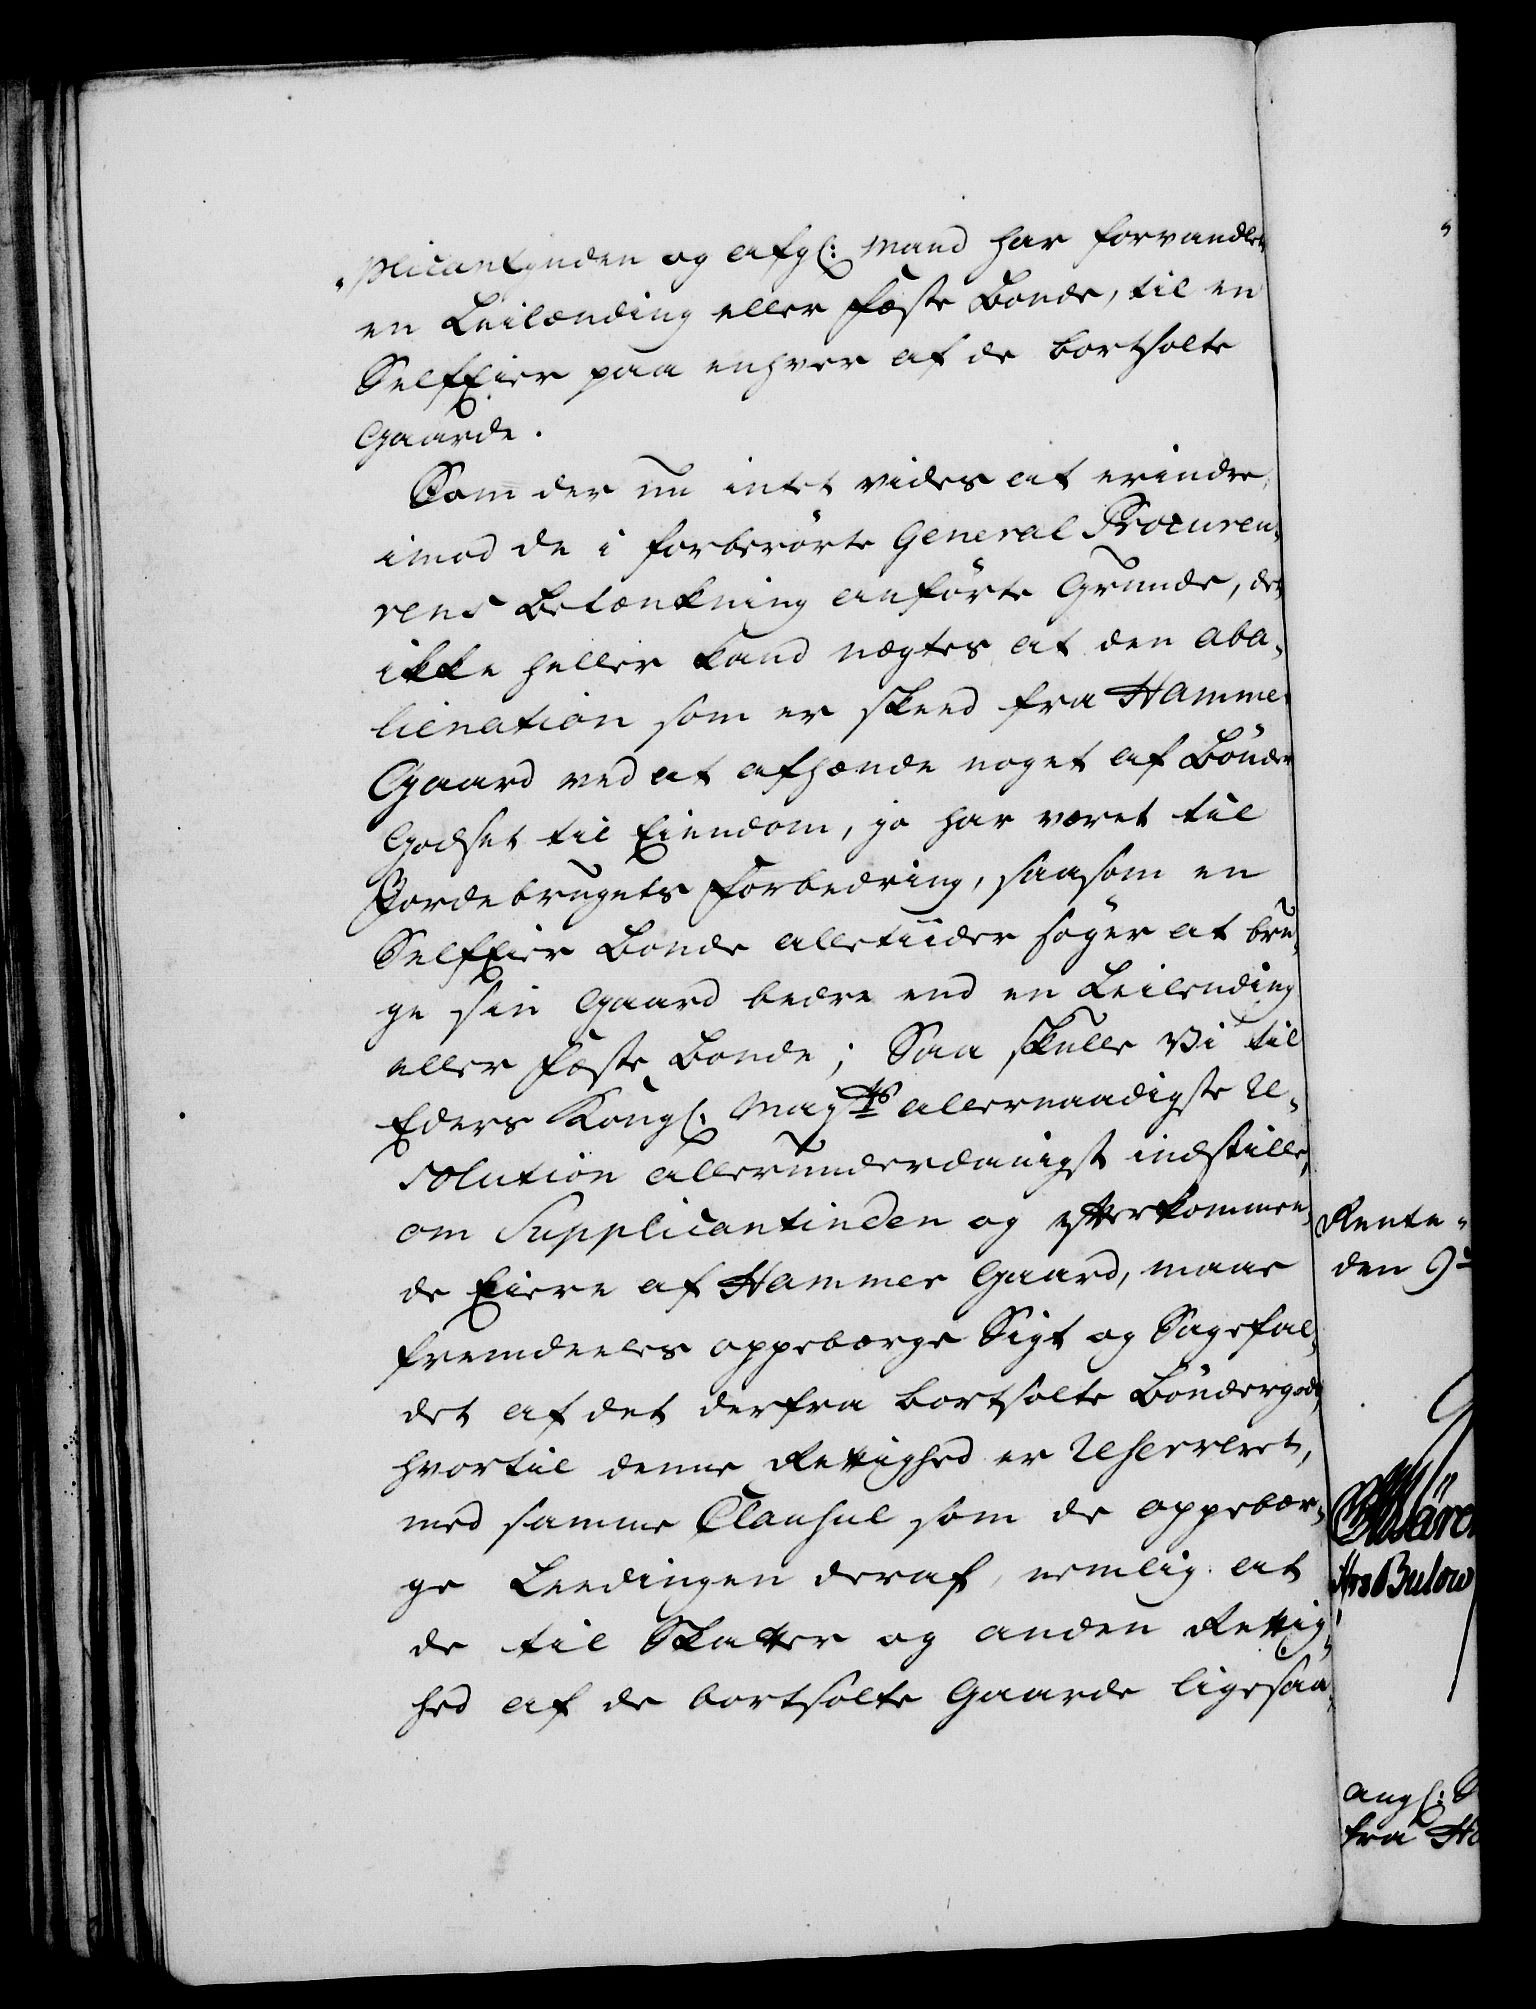 „plicantinden og afgl: Mand har forvandlet
en Leilænding eller Fæste Bonde, til en
SelfEier paa enhver af de bortsolte
Gaarde.
Som der nu intet vides at erindre
imod de i forberörte General Procureu,
rens Betænkning anförte Grunde, det
ikke heller kand nægtes at den aba,
lienation som er skeed fra Hammer
Gaard ved at afhænde noget af Bönder
Godset til Eiendom, jo har været til
Jordebrugets Forbedring, saasom en
SelfEier Bonde alletiider söger at bru,
ge sin Gaard bedre end en Leilending
eller Fæste Bonde; Saa skulle Vi til
Eders Kongl: Mayts allernaadigste Re,
solution allerunderdanigst indstille,
om Supplicantinden og efterkommen,
de Eiere af Hammer Gaard, maae
fremdeeles oppebærge Sigt og Sagefal,
det af det derfra bortsolte Böndergods,
hvortil denne Rettighed er reserveret,
med samme Clausul som de oppebær,
ge Leedingen deraf, nemlig: at
de til Skatter og anden Rettig,
hed af de bortsolte Gaarde ligesaa,
Rente-
den 9d
HrsBulow
angl:
fra Ha